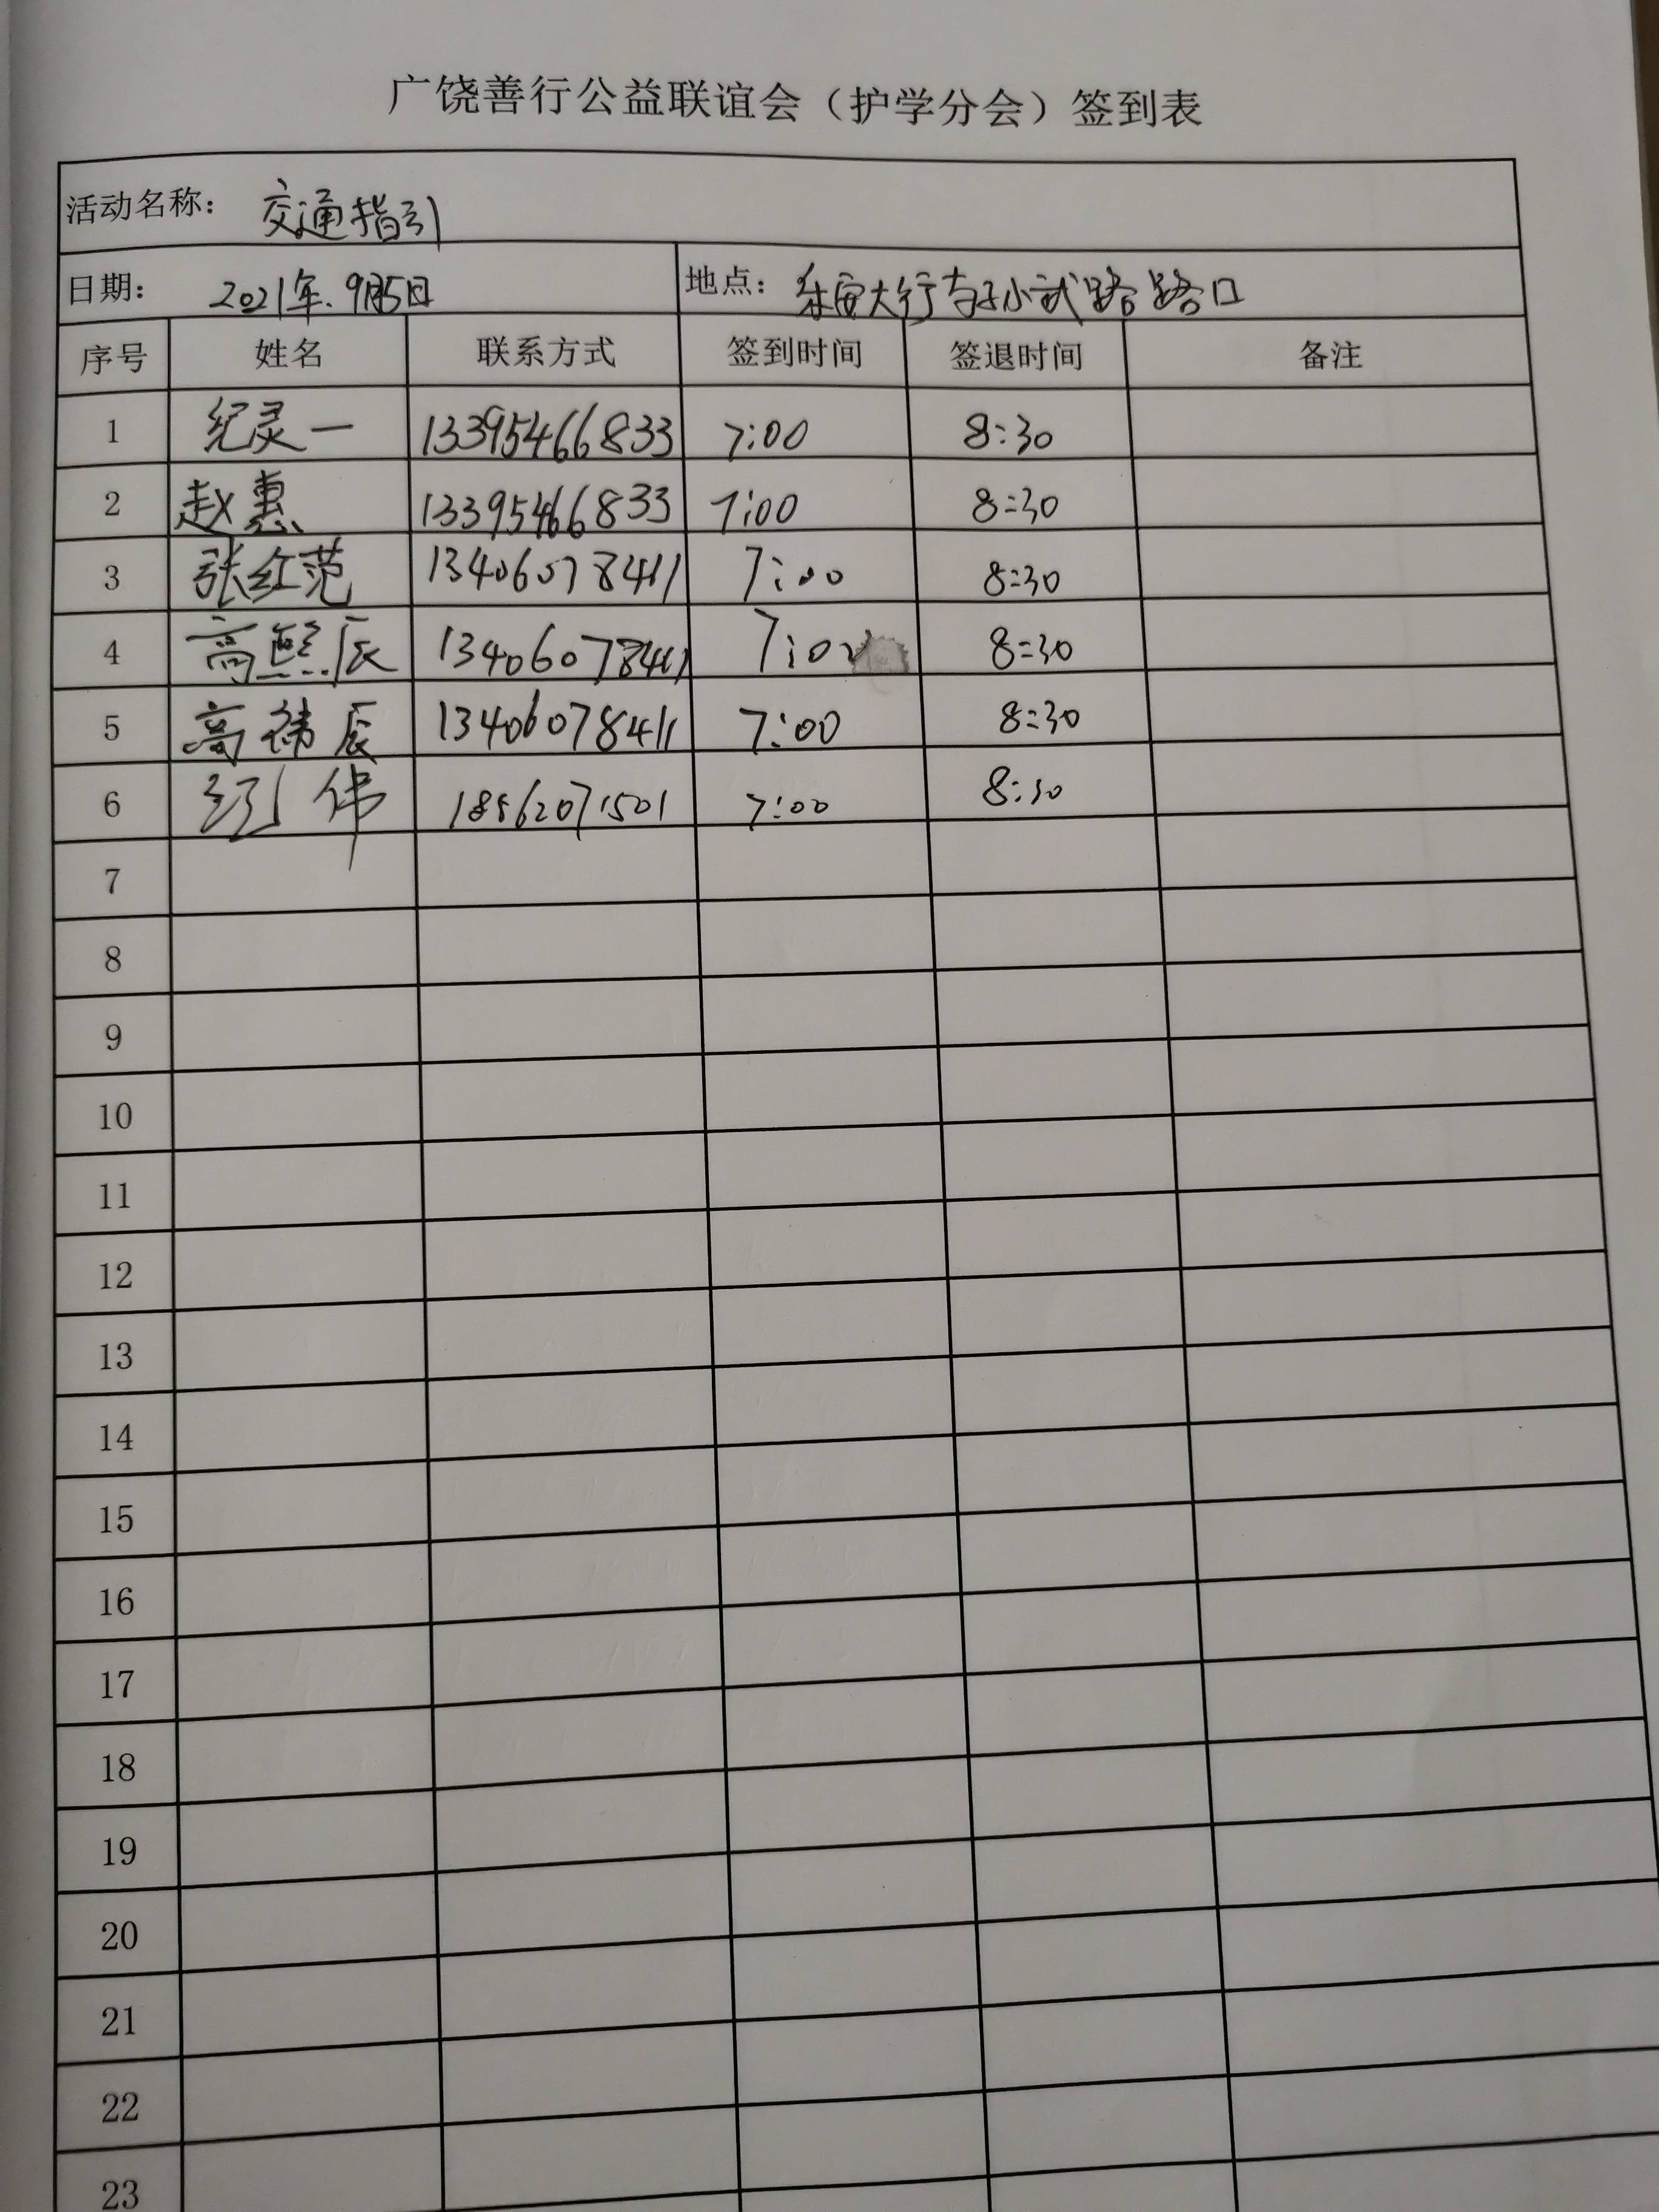 广饶善行公益联谊会（护学分会）签到表
活动名称： 交通指引
日期： 2021年.9月5日 地点： 乐安大行与孙武路路口
序号 姓名 联系方式 签到时间 签退时间 备注
1 纪灵一 13395466833 7:00 8:30
2 赵惠 13395466833 7:00 8:30
3 张红范 13406078411 7:00 8:30
4 高熙辰 13406078411 7:00 8:30
5 高祎辰 13406078411 7:00 8:30
6 伟 18562071501 7:00 8:30
7
8
9
10
11
12
13
14
15
16
17
18
19
20
21
22
23